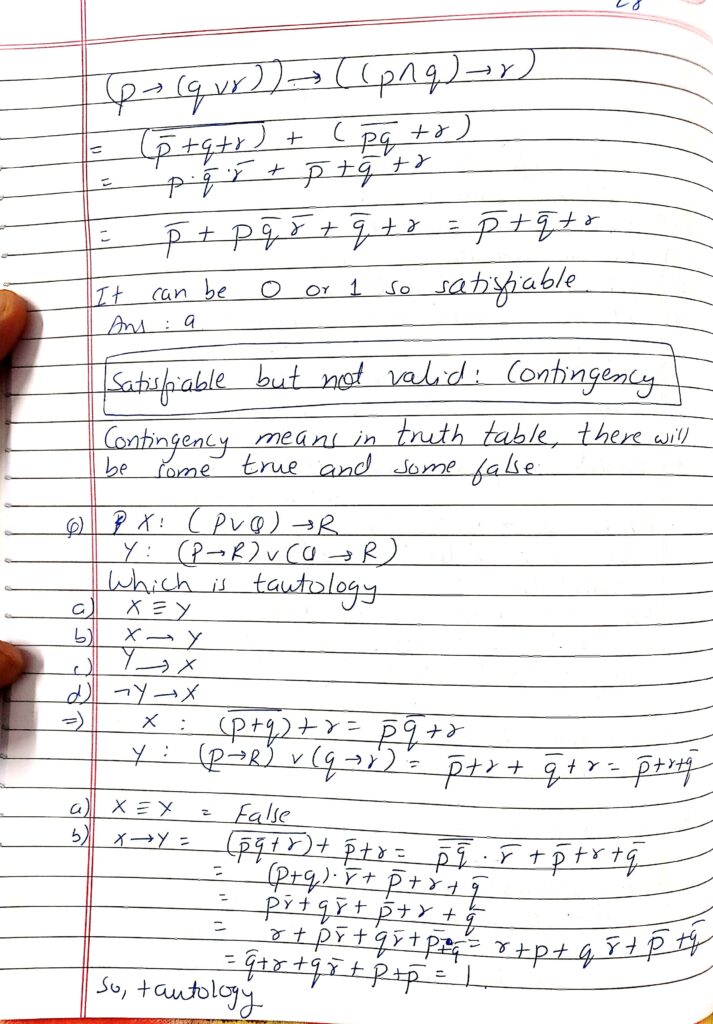 28
(p → (q ∨ r)) → ((p ∧ q) → r)
= (p̅ + q + r)‾ + (p̅q̅ + r)
= p·q̅·r̅ + p̅ + q̅ + r
= p̅ + p q̅ r̅ + q̅ + r = p̅ + q̅ + r
It can be 0 or 1 so satisfiable.
Ans : a
Satisfiable but not valid : Contingency
Contingency means in truth table, there will
be some true and some false
Q) X : (P ∨ Q) → R
Y : (P → R) ∨ (Q → R)
Which is tautology
a) X ≡ Y
b) X → Y
c) Y → X
d) ¬Y → X
⇒) X : (p+q)‾ + r = p̅ q̅ + r
Y : (p → R) ∨ (q → r) = p̅ + r + q̅ + r = p̅ + r + q̅
a) X ≡ Y = False
b) X → Y = (p̅ q̅ + r)‾ + p̅ + r = (p̅ q̅)‾ · r̅ + p̅ + r + q̅
= (p+q)·r̅ + p̅ + r + q̅
= p r̅ + q r̅ + p̅ + r + q̅
= r + p r̅ + q r̅ + p̅ + q̅ = r + p + q r̅ + p̅ + q̅
= q̅ + r + q r̅ + p + p̅ = 1
So, tautology